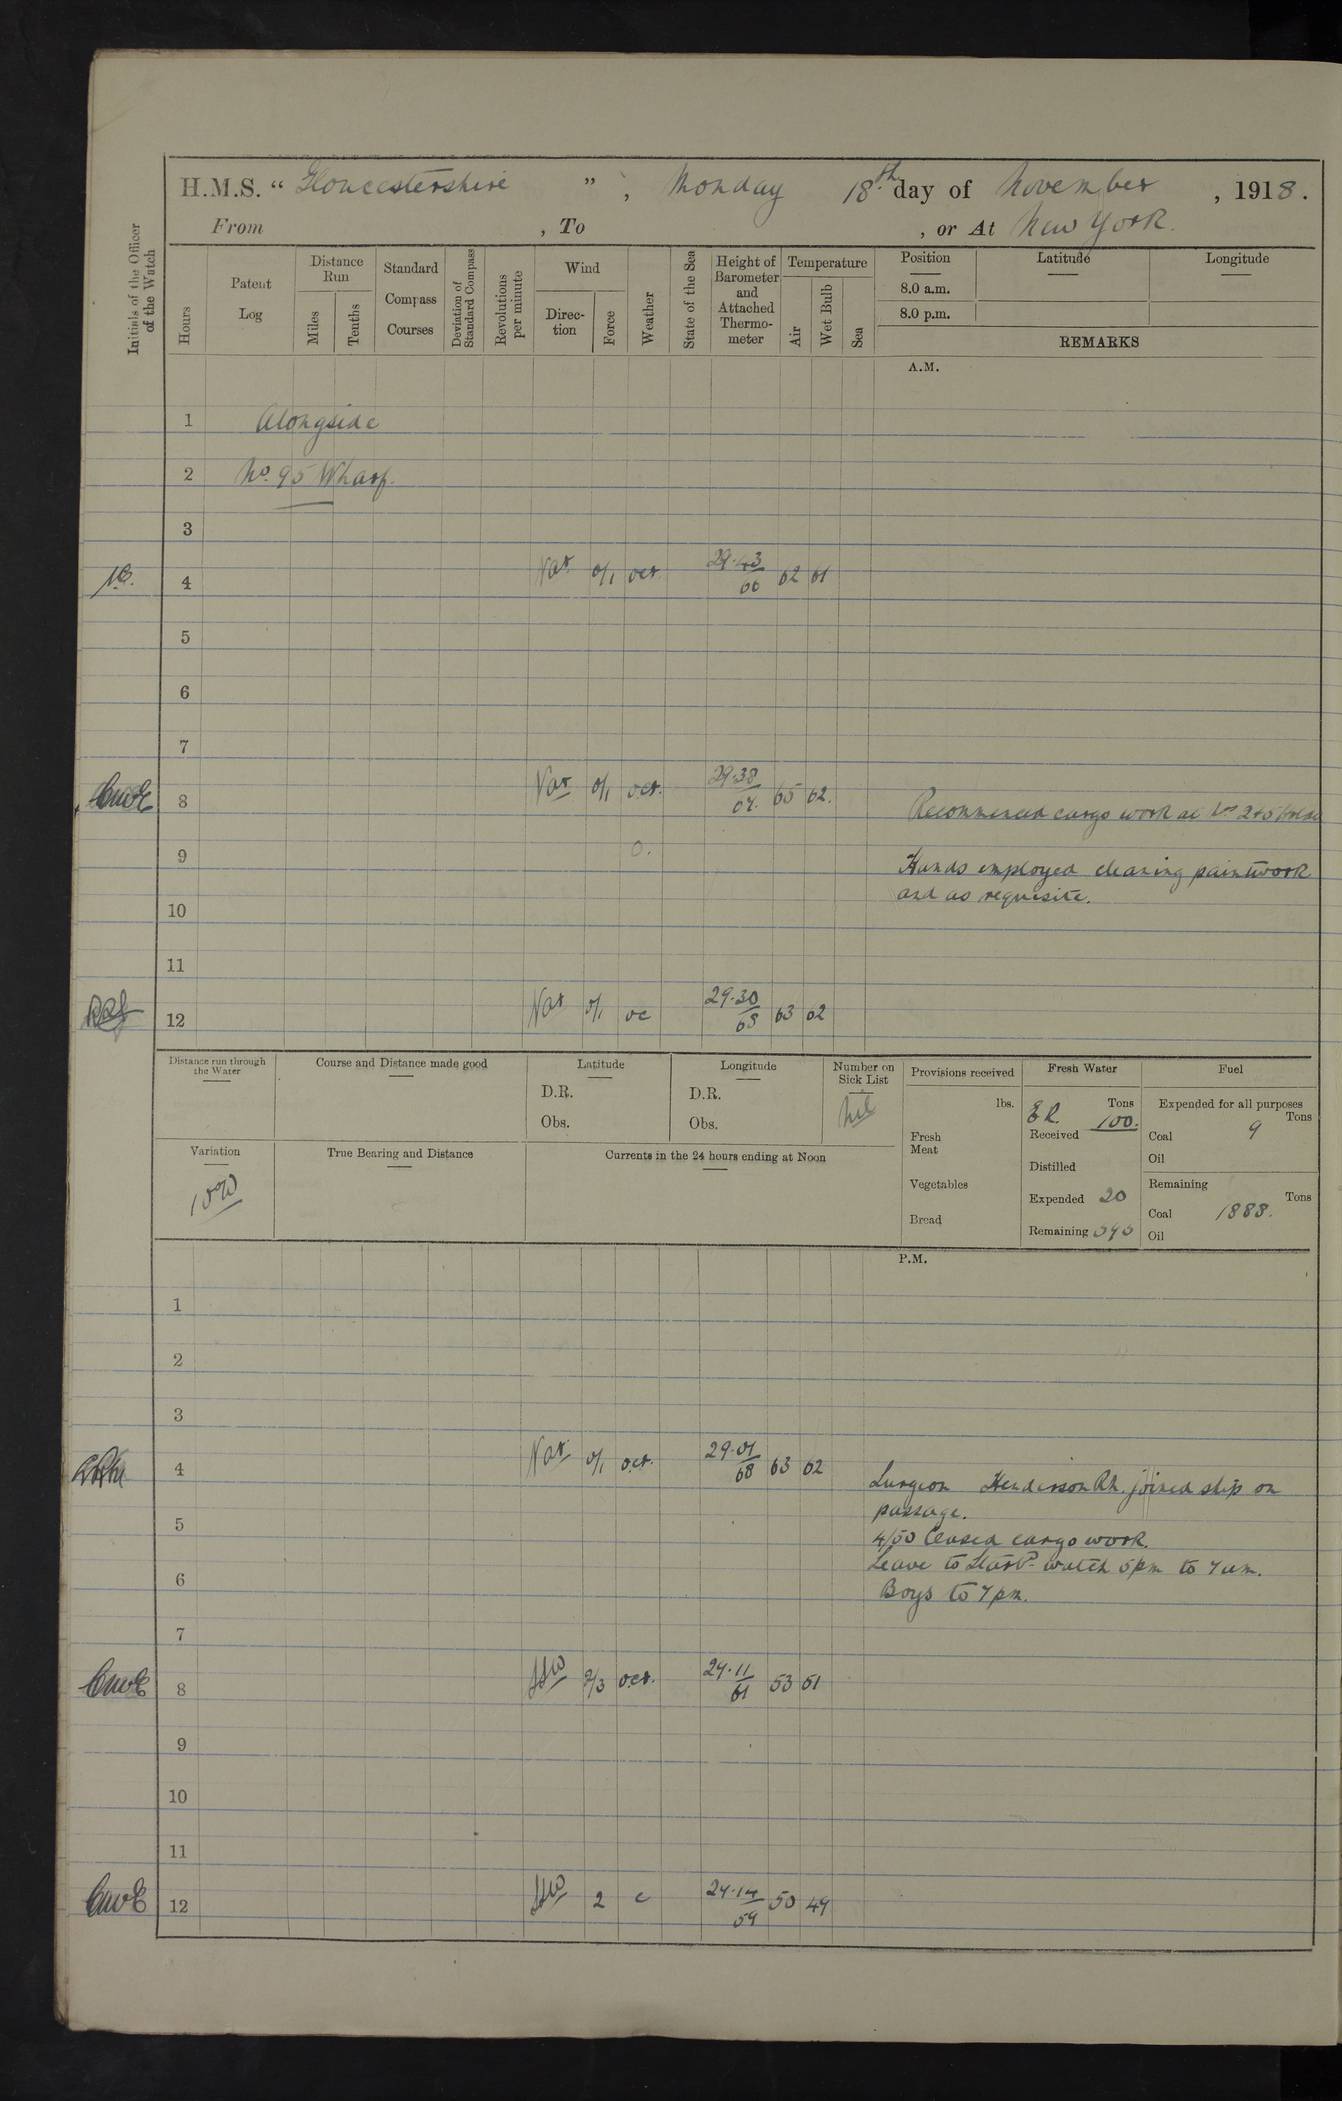 H.M.S. “ Gloucestershire ” , Monday 18th day of November , 1918.
From , To , or At New York.
Initials of the Officer of the Watch
Hours
Patent Log
Distance Run
Miles
Tenths
Standard Compass Courses
Deviation of Standard Compass
Revolutions per minute
Wind
Direction
Force
Weather
State of the Sea
Height of Barometer and Attached Thermometer
Temperature
Air
Wet Bulb
Sea
Position Latitude Longitude
8.0 a.m.
8.0 p.m.
REMARKS
A.M.
1 Alongside
2 No. 95 Wharf.
3
4 Var. 0/1 ocr. 29.43 62 61
5
6
7
CWE 8 Var 0/1 ocr. 29.38 65 62.
Recommenced cargo work at Nos 2+5 Holds
9 o.
Hands employed cleaning paintwork
and as requisite.
10
11
12 Var 0/1 oc 29.30 63 62
Distance run through the Water
Course and Distance made good
Latitude
D.R.
Obs.
Longitude
D.R.
Obs.
Number on Sick List
Nil
Provisions received
lbs.
Fresh Meat
Vegetables
Bread
Fresh Water
Tons
E.R. 100.
Received
Distilled
Expended 20
Remaining
Fuel
Expended for all purposes
Tons
Coal 9
Oil
Remaining
Tons
Coal 1883.
Oil
Variation
True Bearing and Distance
Currents in the 24 hours ending at Noon
P.M.
1
2
3
4 Var. 0/1 ocr. 29.01 68 63 62
Surgeon Henderson R.h. joined ship on
passage.
5
4/50 Ceased cargo work.
Leave to Starbd watch 5pm to 7am.
6
Boys to 7pm.
7
CWE 8 2/3 ocr. 29.11 61 53 51
9
10
11
CWE 12 2 c 29.14 59 50 49